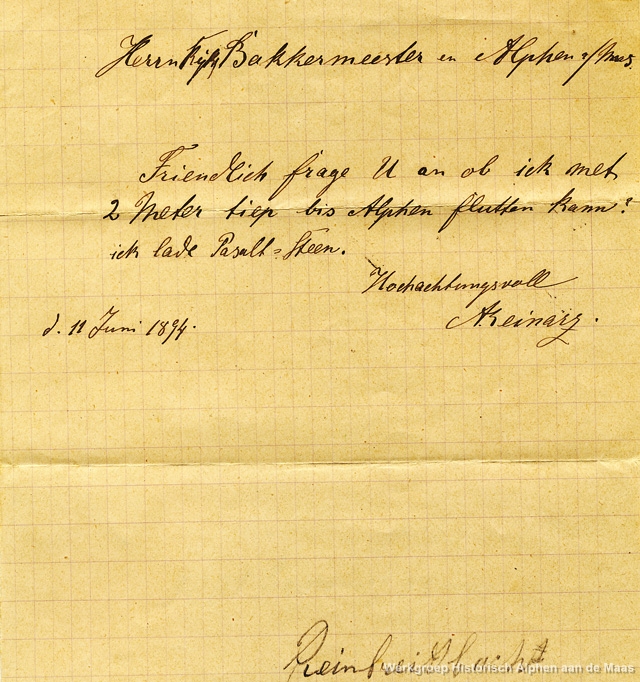 Herrn Rijks Bakkermeester en Alphen a/Maas
Friendlich frage U an ob ick met
2 Meter tiep bis Alphen flutten kann?
ick lade Pasalt=Steen.
Hochachtungsvoll
A Reinarz.
d. 11 Juni 1894.
Werkgroep Historisch Alphen aan de Maas